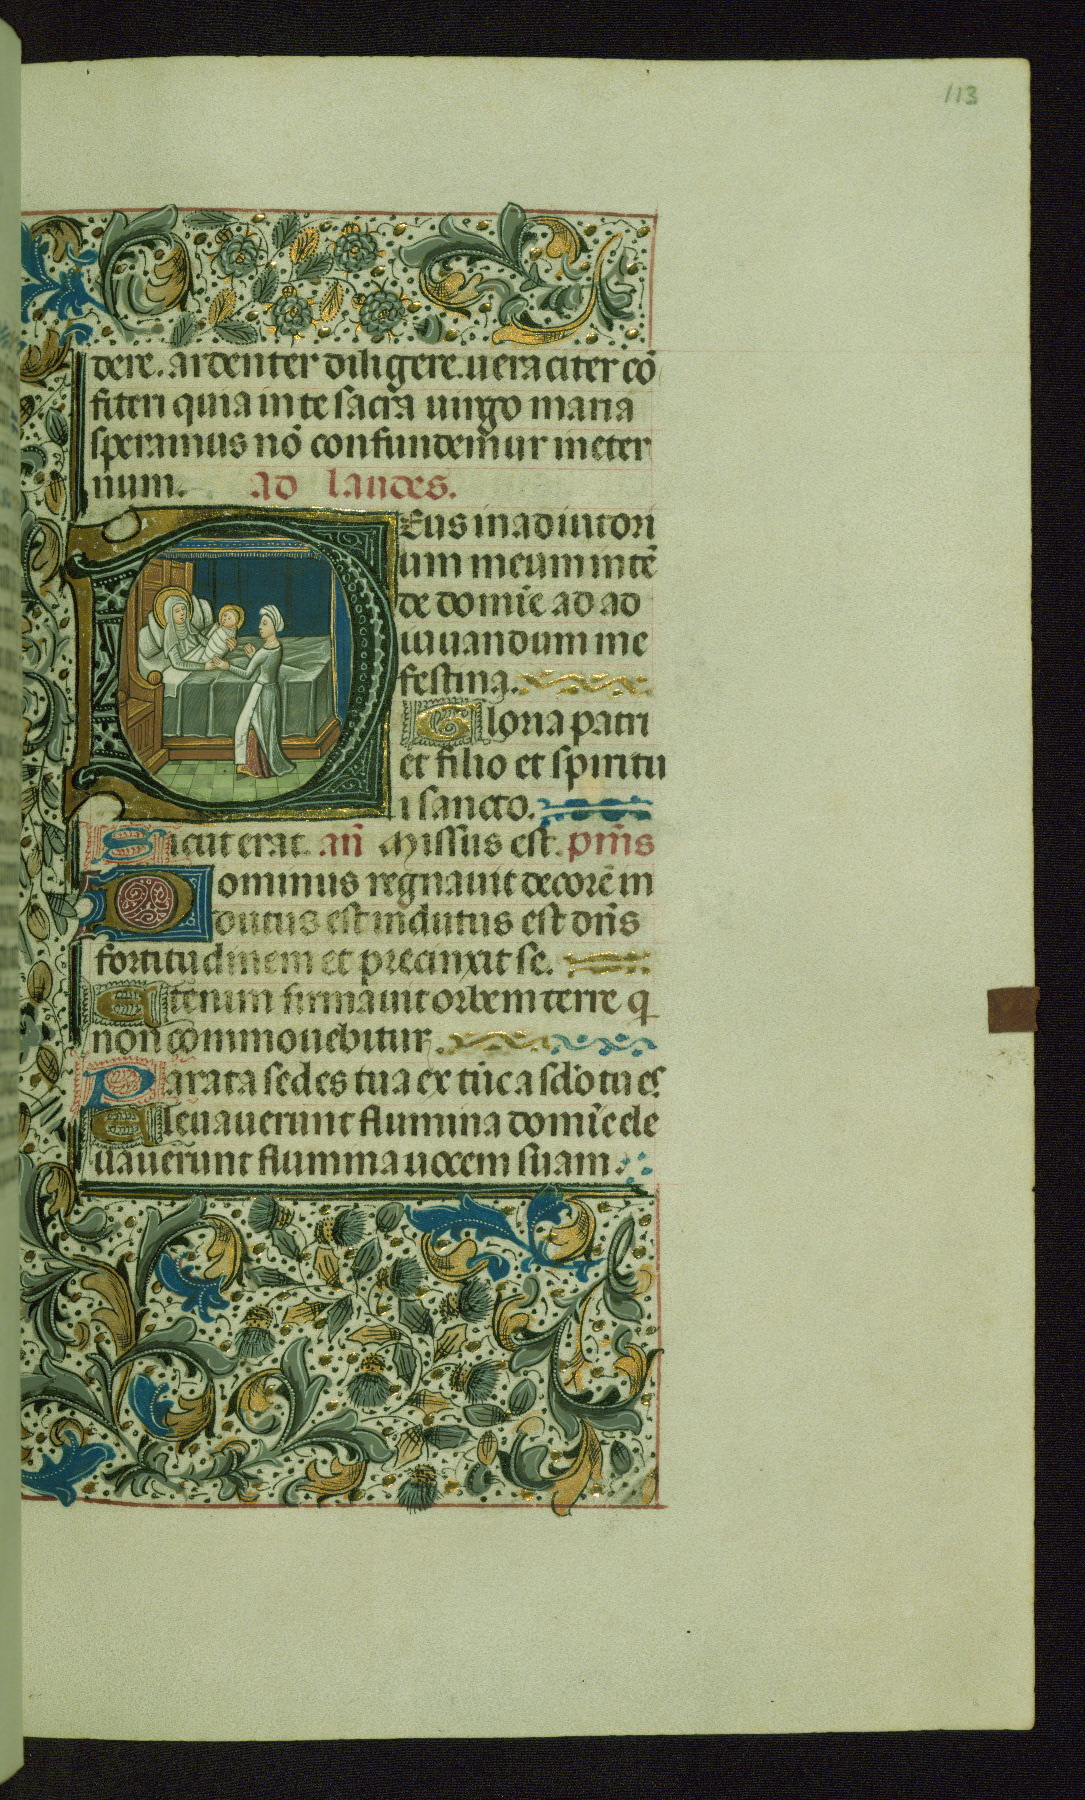 113
dere. ardenter diligere. ueraciter cō
fiteri quia in te sacra uirgo maria
speramus nō confundemur in eter
num. ad laudes.
DEus in adiutori
um meum intē
de domīe ad ad
iuuandum me
festina.
Gloria patri
et filio et spiritu
i sancto.
Sicut erat. añ Missus est. pm̄s
Dominus regnauit decorē in
dutus est indutus est dn̄s
fortitudinem et precinxit se.
Etenim firmauit orbem terre q
non commouebitur.
Parata sedes tua ex tūc a sclo tu es
Eleuauerunt flumina domīe ele
uauerunt flumina uocem suam.